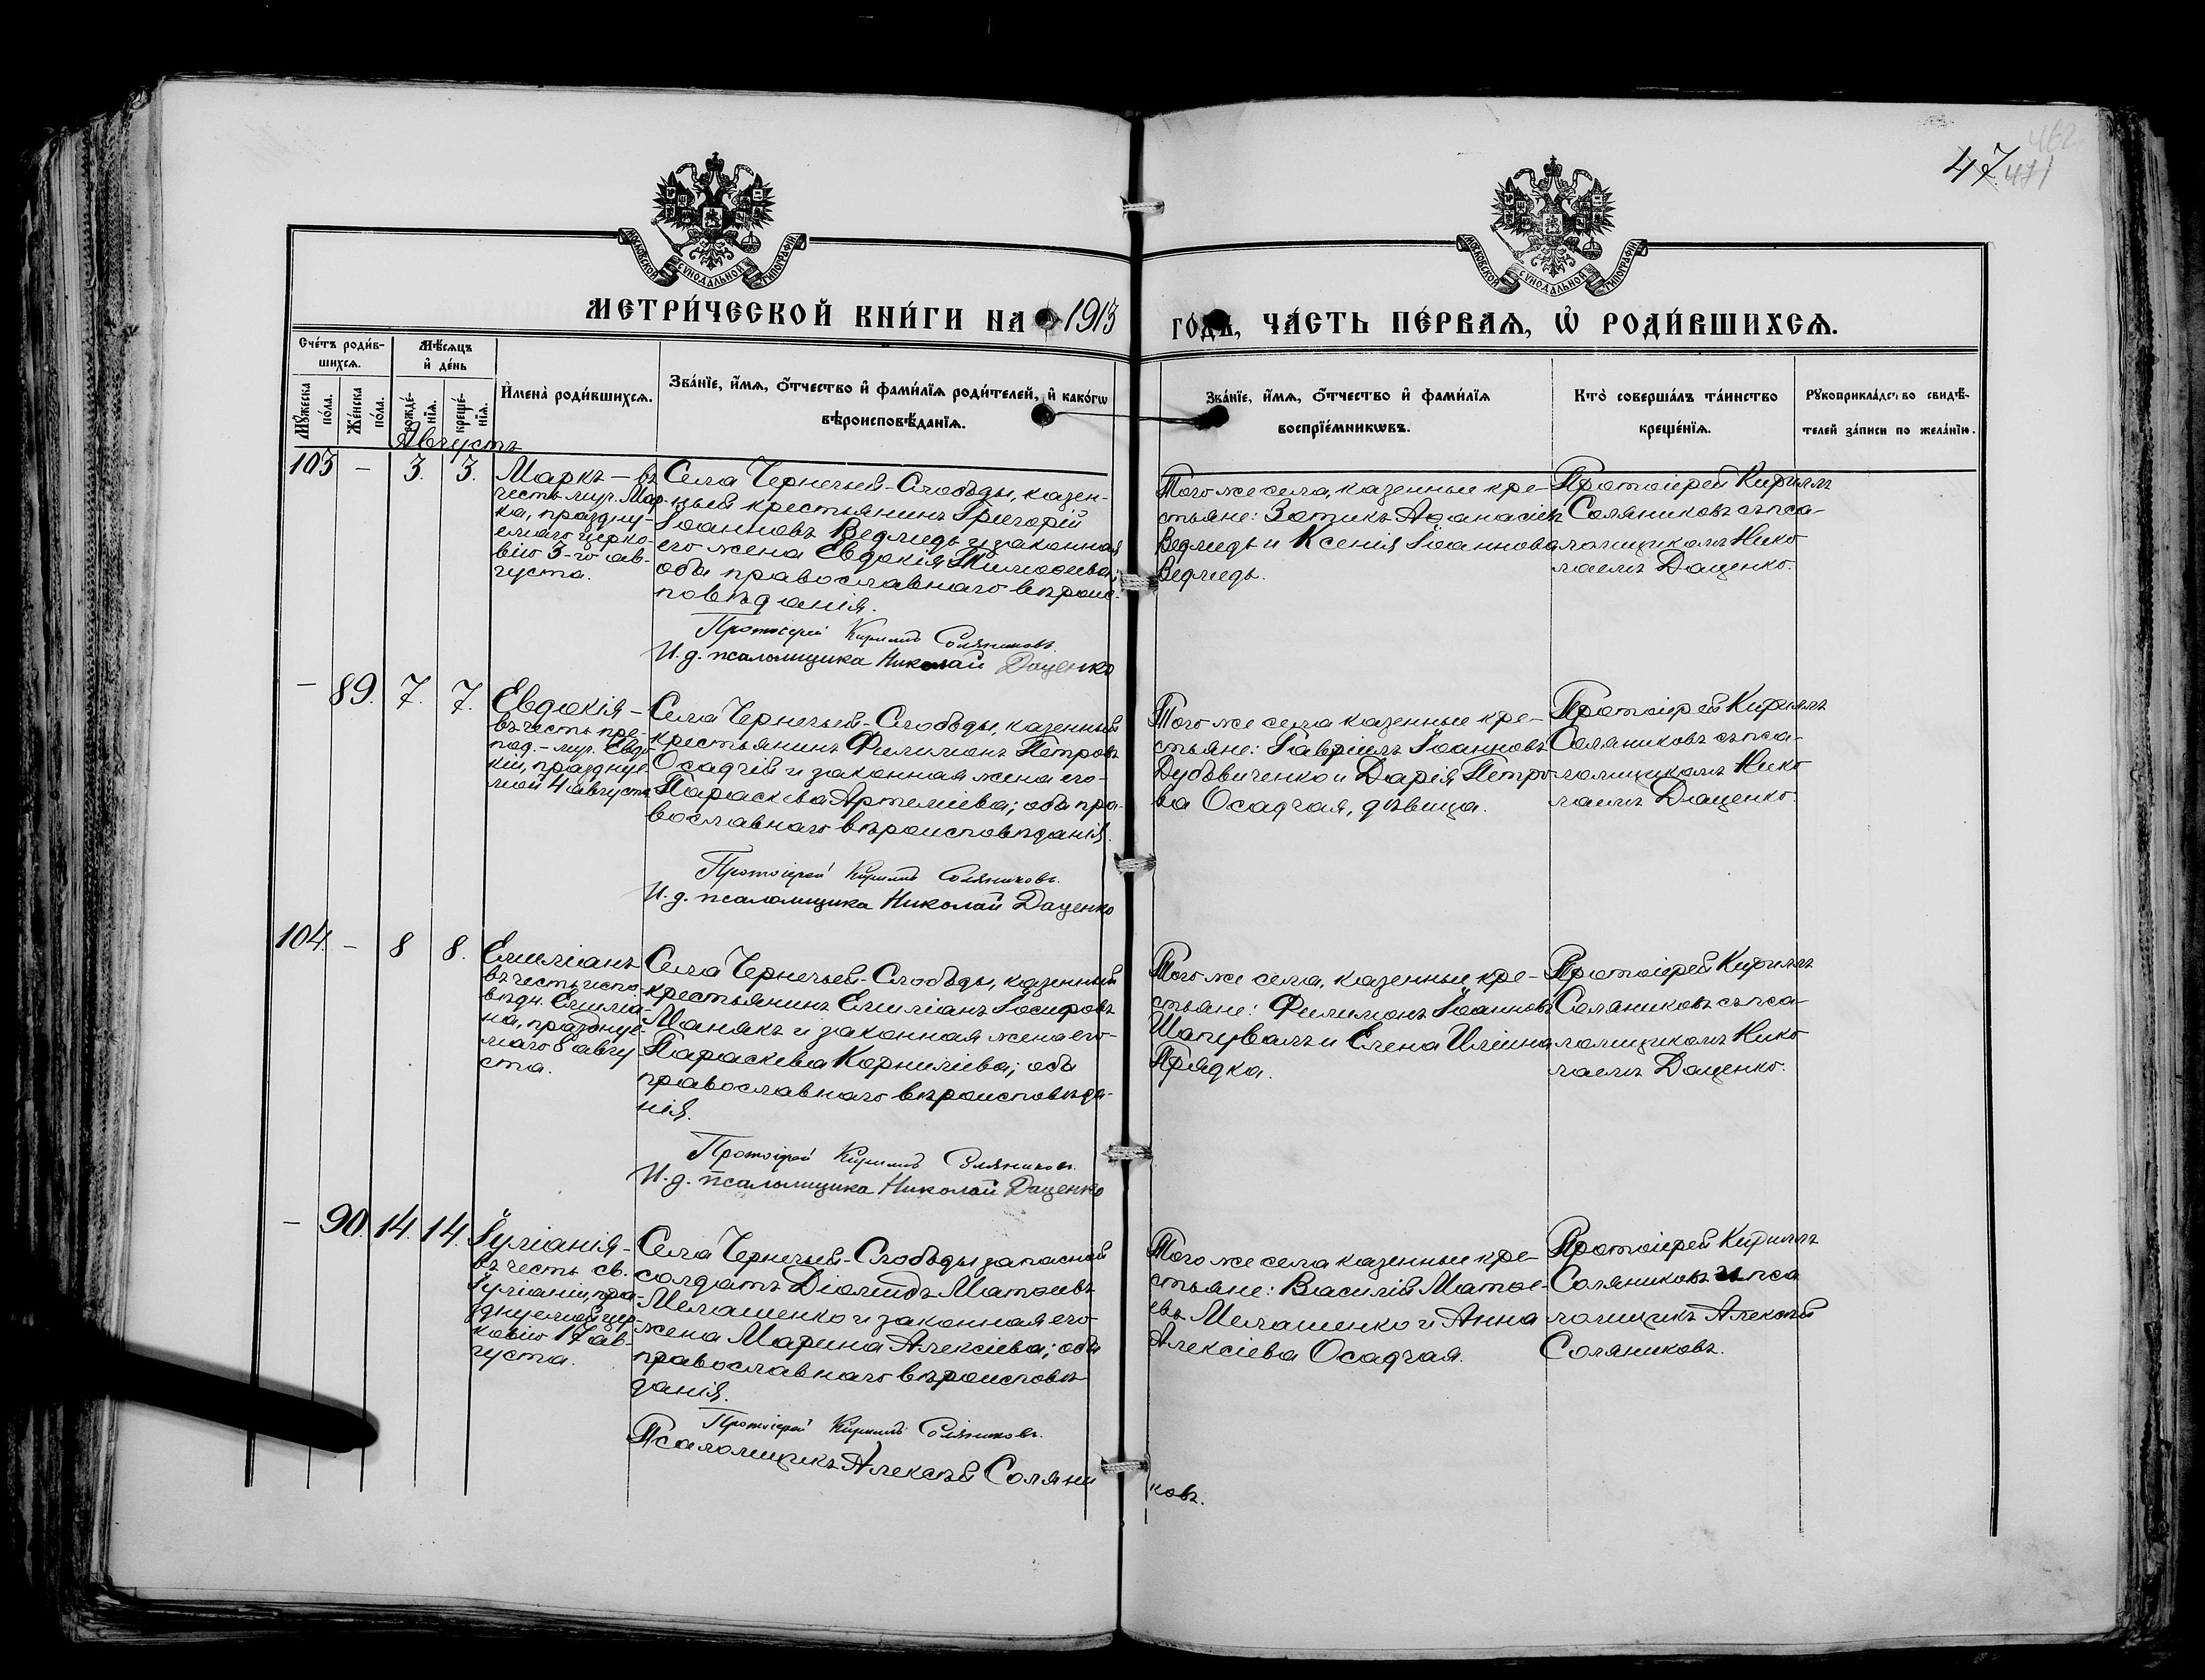 47
471
462
МОСКОВСКОЙ СѴНОДАЛЬНОЙ ТИПОГРАФІИ
МОСКОВСКОЙ СѴНОДАЛЬНОЙ ТИПОГРАФІИ
МЕТРИ́ЧЕСКОЙ КНИ́ГИ НА 1913
ГО́ДЪ, ЧА́СТЬ ПЕ́РВАЯ, Ѡ҆ РОДИ́ВШИХСЯ.
Сче́тъ роди́в-
шихся.
Мѣ́сяцъ
и҆ де́нь
Мꙋ́жеска
по́ла.
Же́нска
по́ла.
рожде́-
нїя.
креще́-
нїя.
И҆мена̀ роди́вшихся.
Зва́нїе, и҆́мя, ѻ҆́тчество и҆ фами́лїя роди́телей, и҆ како́гѡ
вѣроисповѣ́данїя.
Зва́нїе, и҆́мя, ѻ҆́тчество и҆ фами́лїя
воспрїе́мникѡвъ.
Кто̀ соверша́лъ та́инство
креще́нїя.
Рꙋкоприкла́дство свидѣ́-
телей за́писи по жела́нїю.
Августъ
103 – 3. 3.
Маркъ – въ
честь муч. Мар-
ка, праздну-
емаго церко-
вію 3-го ав-
густа.
Села Чернечьей-Слободы, казен-
ный крестьянинъ Григорій
Іоанновъ Ведмедь и законная
его жена Евдокія Тимоѳеева;
оба православнаго вѣроис-
повѣданія.
Протоіерей Кириллъ Соляниковъ.
И. д. псаломщика Николай Даценко
Того же села, казенные кре-
стьяне: Зотикъ Аѳанасіевъ
Ведмедь и Ксенія Іоаннова
Ведмедь.
Протоіерей Кириллъ
Соляниковъ съ пса-
ломщикомъ Нико
лаемъ Даценко.
– 89. 7. 7.
Евдокія –
въ честь пре-
под.-муч. Евдо-
кіи, праздну-
емой 4 августа
Села Чернечьей-Слободы, казенный
крестьянинъ Филимонъ Петровъ
Осадчій и законная жена его-
Параскева Артеміева; оба пра-
вославнаго вѣроисповѣданія.
Протоіерей Кириллъ Соляниковъ.
И. д. псаломщика Николай Даценко
Того же села казенные кре-
стьяне: Гавріилъ Іоанновъ
Дубовиченко и Дарія Петро-
ва Осадчая, дѣвица.
Протоіерей Кириллъ
Соляниковъ съ пса-
ломщикомъ Нико
лаемъ Даценко.
104. – 8 8.
Емиліанъ
въ честь испо-
вѣдн. Емилиа-
на, праздну-
емаго 8 авгу
ста.
Села Чернечьей-Слободы, казенный
крестьянинъ Емиліанъ Іосифовъ
Манякъ и законная жена его-
Параскева Корниліева; оба
православнаго вѣроисповѣда-
нія.
Протоіерей Кириллъ Соляниковъ.
И. д. псаломщика Николай Даценко
Того же села, казенные кре-
стьяне: Филимонъ Іоанновъ
Шапувалъ и Елена Иліина
Прядка.
Протоіерей Кириллъ
Соляниковъ съ пса-
ломщикомъ Нико
лаемъ Даценко.
– 90. 14. 14.
Іуліанія –
въ честь св.
Іуліаніи, пра-
зднуемой цер-
ковію 17 ав-
густа.
Села Чернечьей-Слободы запасной
солдатъ Діомидъ Матѳеевъ
Мелашенко и законная его
жена Марина Алексіева; оба
православнаго вѣроисповѣ
данія.
Протоіерей Кириллъ Соляниковъ.
Псаломщикъ Алексѣй Соляни
ковъ.
Того же села казенные кре-
стьяне: Василій Матѳе-
евъ Мелашенко и Анна
Алексіева Осадчая.
Протоіерей Кириллъ
Соляниковъ и пса
ломщикъ Алексѣй
Соляниковъ.